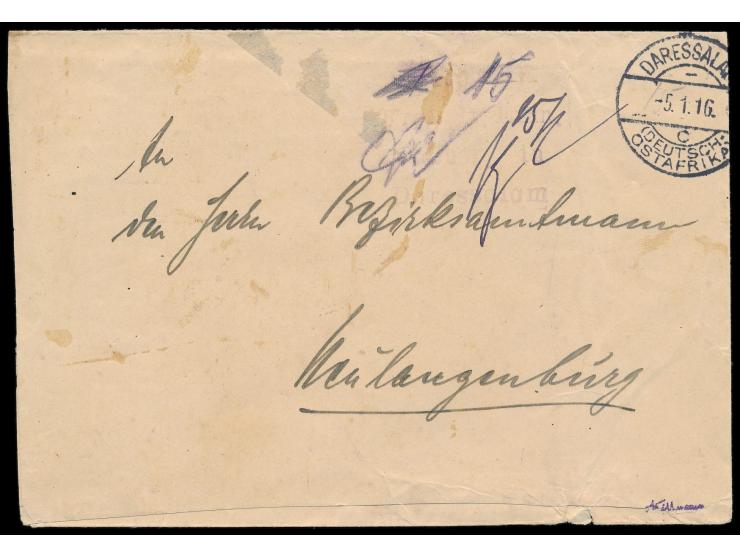 DARESSALAM
-5.1.16.
C
(DEUTSCH-
OSTAFRIKA
15
15 h
Daressalam
An
den Herrn Bezirksamtmann
Neulangenburg